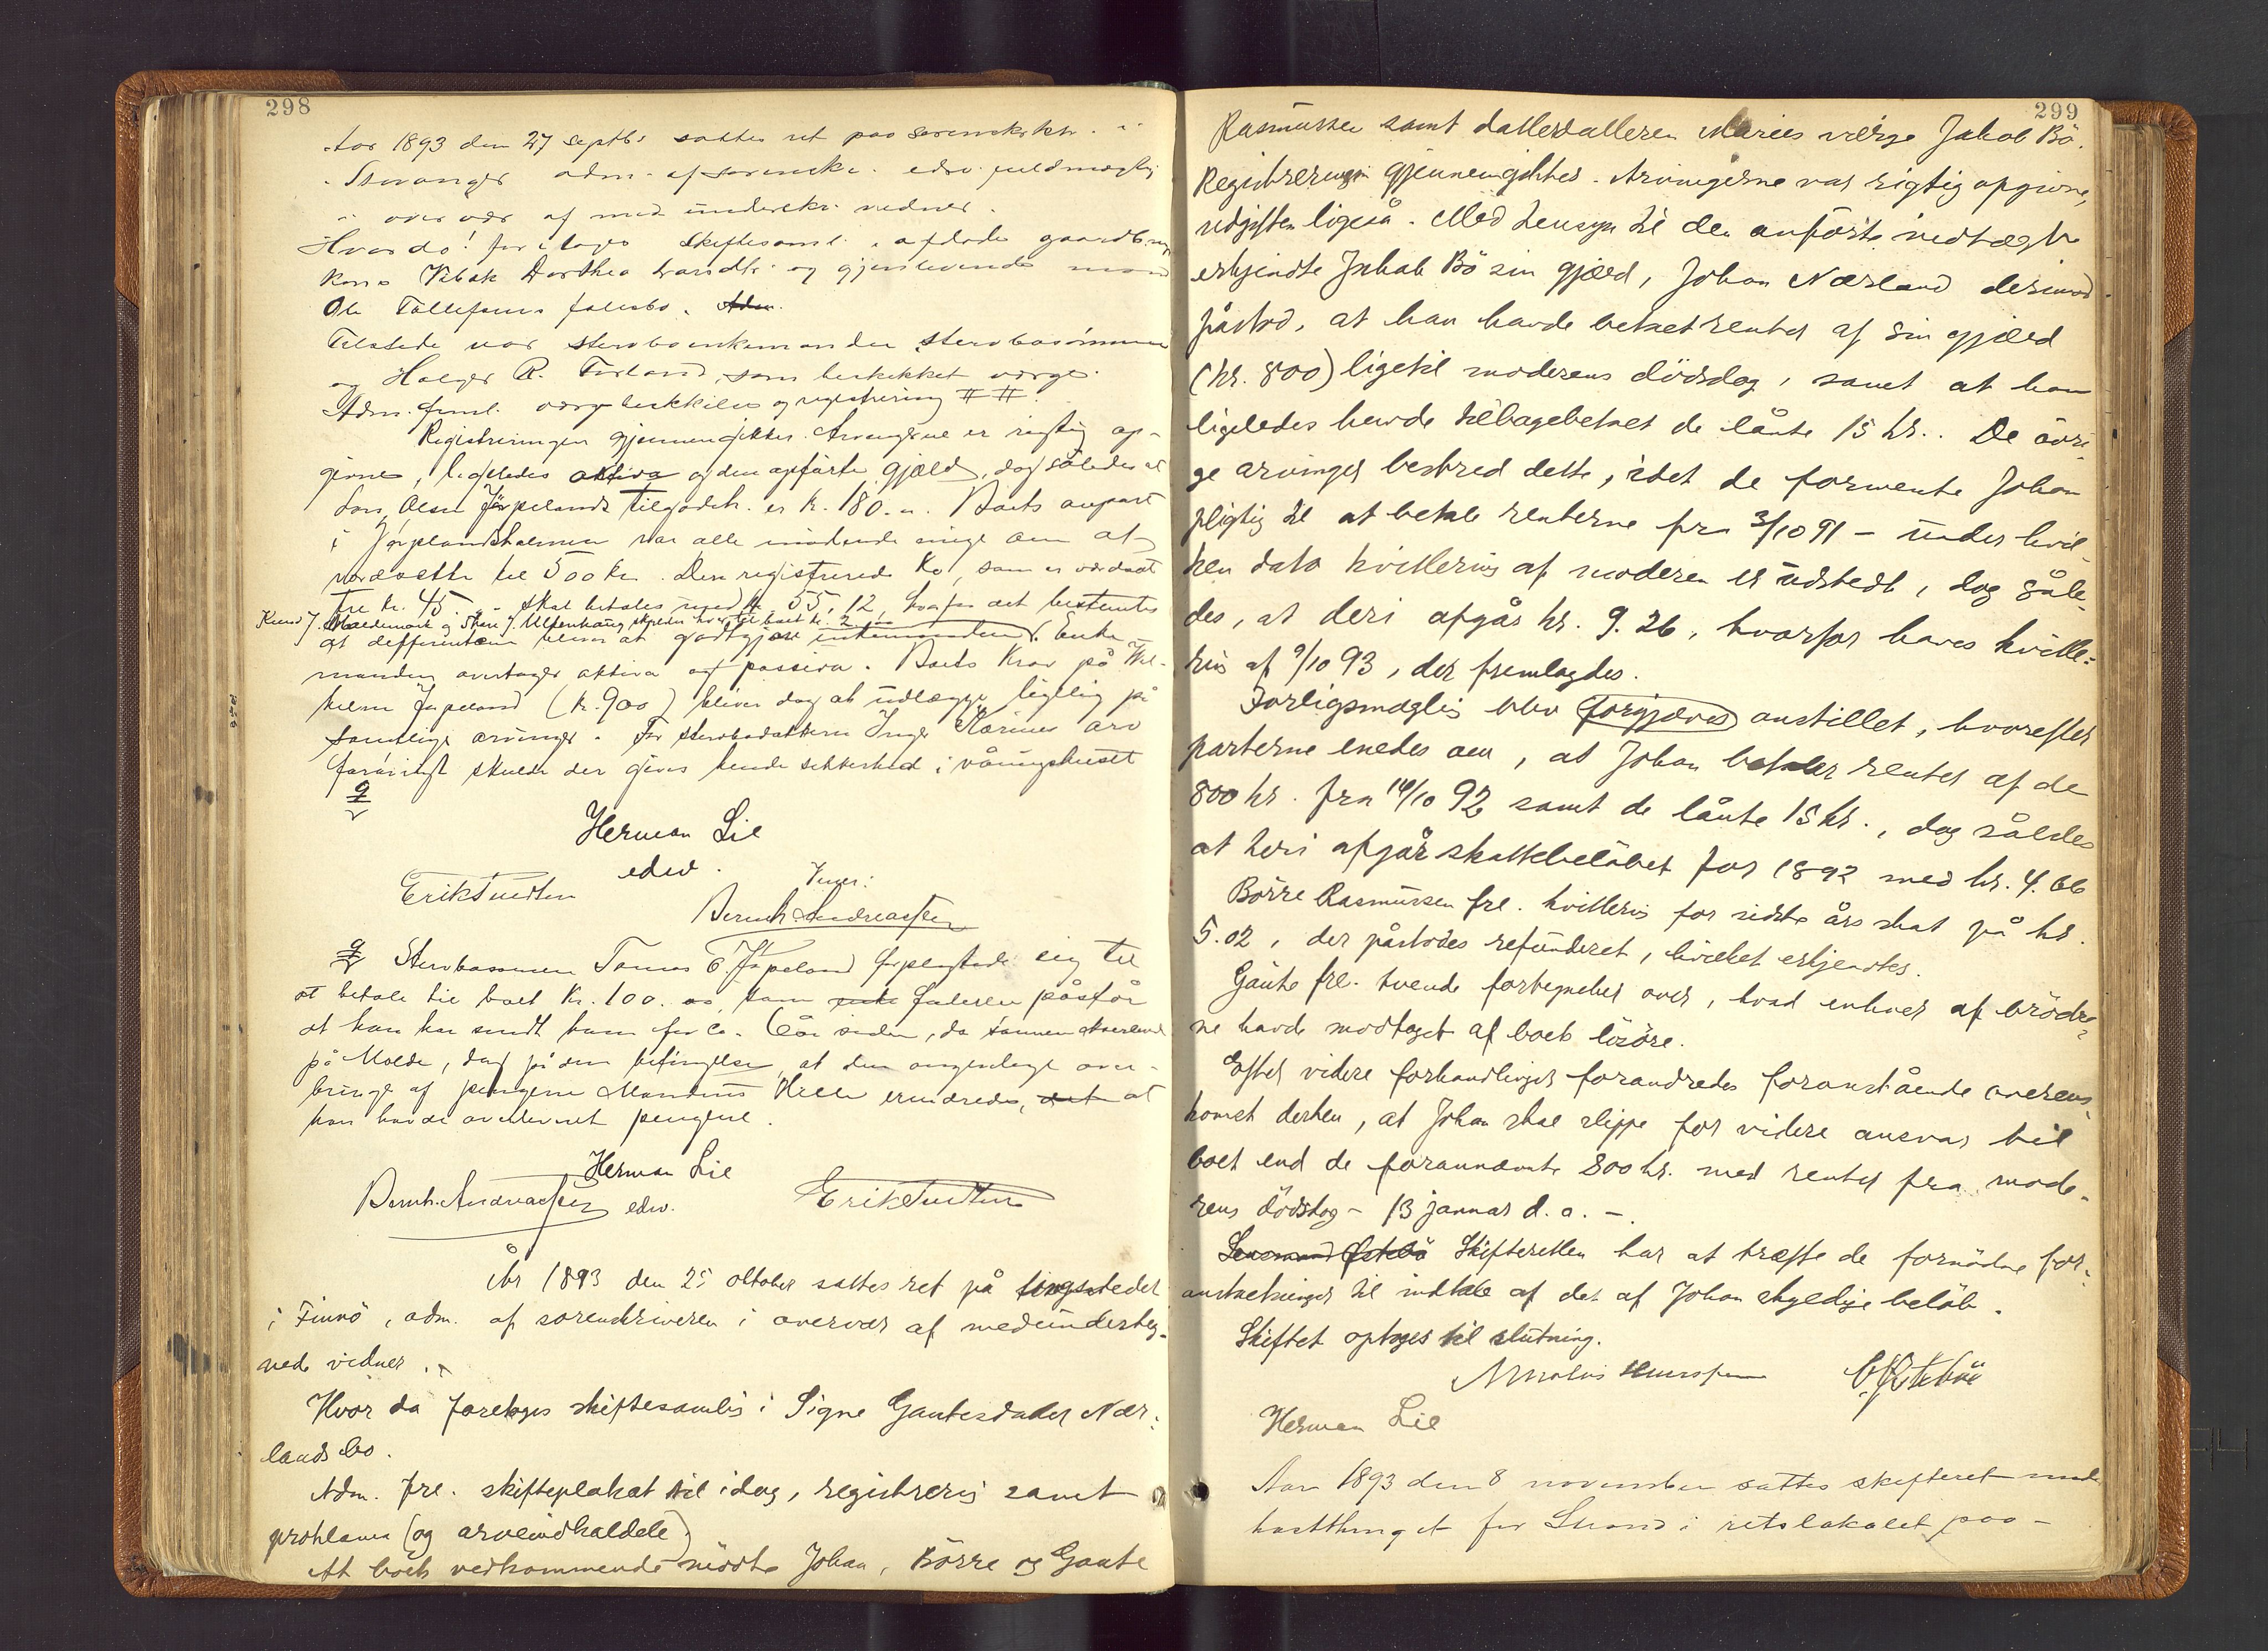 298
Aar 1893 den 27 septbr sattes ret paa sorenskrktr. i
Stavanger adm. af sorenskr. edsv. fuldmægtig
i overvær af med underskr. vidner.
Hvor da! foretoges skiftesaml. i afdøde gaardbr.
kone Dorthea og gjenlevende mand
Ole Tollefsens fællesbo. Adm.
Tilstede var sterboenkemanden, sterbosønnen
og Holger R. Forland, som beskikket værge.
Adm. freml. værgebeskikkelse og registrering # #.
Registreringen gjennemgikkes. Arvingerne er rigtig op-
givne, ligeledes aktiva og den opførte gjæld, dog således at
Lars Olsen Jørpelands tilgodeh. er k. 180. Boets anpart
i Jørpelandsholmen var alle mødende enige om at
værdsætte til 500 kr. Den registrerede ko, som er værdsat
for kr. 45. skal betales med kr. 55,12, hvorfor det bestemtes
Knud J. og J. skylder hver til boet k. 2
at differencen bliver at godtgjøre enkemanden. Enke-
manden overtager aktiva og passiva. Boets krav på
Jøpeland (k. 900) bliver dog at udlægge ligelig på
samtlige arvinger. For sterbodatteren Inger Karines arv
forøvrigt skulde der gives hende sikkerhed i våningshuset
Herman Lie
edsv.
Erik Tuedten
Bernh. Andreassen
Sterbosønnen Tomas Jøpeland forpligtede sig til
at betale til boet Kr. 100. som faderen påstår
at han har sendt ham for ca. år siden, da sønnen
på Molde, dog på den betingelse, at den angjældende over-
bringer af pengene Hille erindrede, at
han havde overleveret pengene.
Herman Lie
Bernh. Andreassen edsv. Erik Tuedten
År 1893 den 25 oktober sattes ret på tingstedet
i Finnö, adm. af sorenskriveren i overvær af medundersteg-
nede vidner.
Hvor da foretoges skiftesamlig i Signe Gautesdatter Nær-
lands bo.
Adm. fre. skifteplakat til idag, registrerig samt
proklama (og arveindkaldele)
At boets vedkommende mödte Johan, Börre og Gaute
299
Rasmussen samt datterdatteren Maries værge Jakob Bö.
Registreringen gjennemgikkes. Arvingerne var rigtig opgivne,
udgiften ligeså. Med hensyn til den anförte indtægt
erkjendte Jakob Bö sin gjæld, Johan Nærland derimod
påstod, at han havde betalt renter af sin gjæld
(kr. 800) ligetil moderens dödsdag, samt at han
ligeledes havde tilbagebetalt de lånte 15 kr.. De övri-
ge arvinger bestred dette, idet de formente Johan
pligtig til at betale renterne fra 3/10 91 – under hvil-
ken dato kvitterig af moderen er udstedt, dog såle-
des, at deri afgår kr. 9.26, hvorfor haves kvitte-
rig af 9/10 93, der fremlagdes.
Forligsmæglig blev forgjæves anstillet, hvorefter
parterne enedes om, at Johan betaler renter af de
800 kr. fra 14/10 92 samt de lånte 15 kr., dog således
at heri afgår skattebelöbet for 1892 med kr. 4.66
Börre Rasmussen fre. kvitterig for sidste års skat på kr.
5.02, der påstodes refunderet, hvilket erkjendtes.
Gaute fre. tvende fortegnelser over, hvad enhver af brödre-
ne havde modtaget af boets lösöre.
Efter videre forhandlinger forandredes foranstående overens-
komst derhen, at Johan skal slippe for videre ansvar til
boet end de forannævnte 800 kr. med renter fra mode-
rens dödsdag – 13 januar d. a. –.
Lensmand Östebö Skifteretten har at træffe de fornödne for-
anstaltninger til indtale af det af Johan skyldige belöb.
Skiftet optages til slutning.
Herman Lie
Aar 1893 den 8 november sattes skifteret under
höstthinget for Strand i retslokalet paa